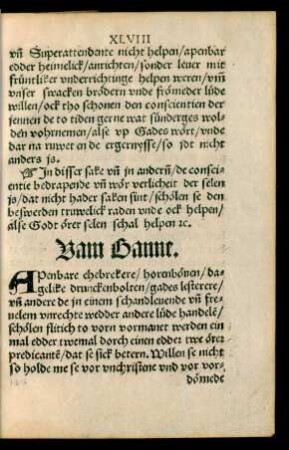 XLVIII
vñ Superattendente nicht helpen/apenbar
edder heimelick/anrichten/sonder leuer mit
früntliker vnderrichtinge helpen weren/vm̃
vnser swacken brödern vnde frömeder lüde
willen/ock tho schonen den conscientien der
jennen de to tiden gerne wat sünderges wol-
den vornemen/alse vp Gades wört/vnde
dar na ruwet en de ergernysse/so jdt nicht
anders js.
In disser sake vñ in anderñ/de consci-
entie bedrapende vñ wör verlicheit der selen
js/dat nicht hader saken sint/schölen se den
beswerden truwelick raden vnde ock helpen/
alse Godt örer selen schal helpen ꝛc.
Vam Banne.
APenbare ehebrekere/horenböuen/da-
gelike drunckenbolten/gades lesterere/
vñ andere de jn einem schandleuende vñ fre-
uelem vnrechte wedder andere lüde handelẽ/
schölen flitich to vorn vormanet werden ein
mal edder twemal dorch einen edder twe örer
predicantẽ/dat se sick betern. Willen se nicht
so holde me se vor vnchristene vnd vor vor-
dömede